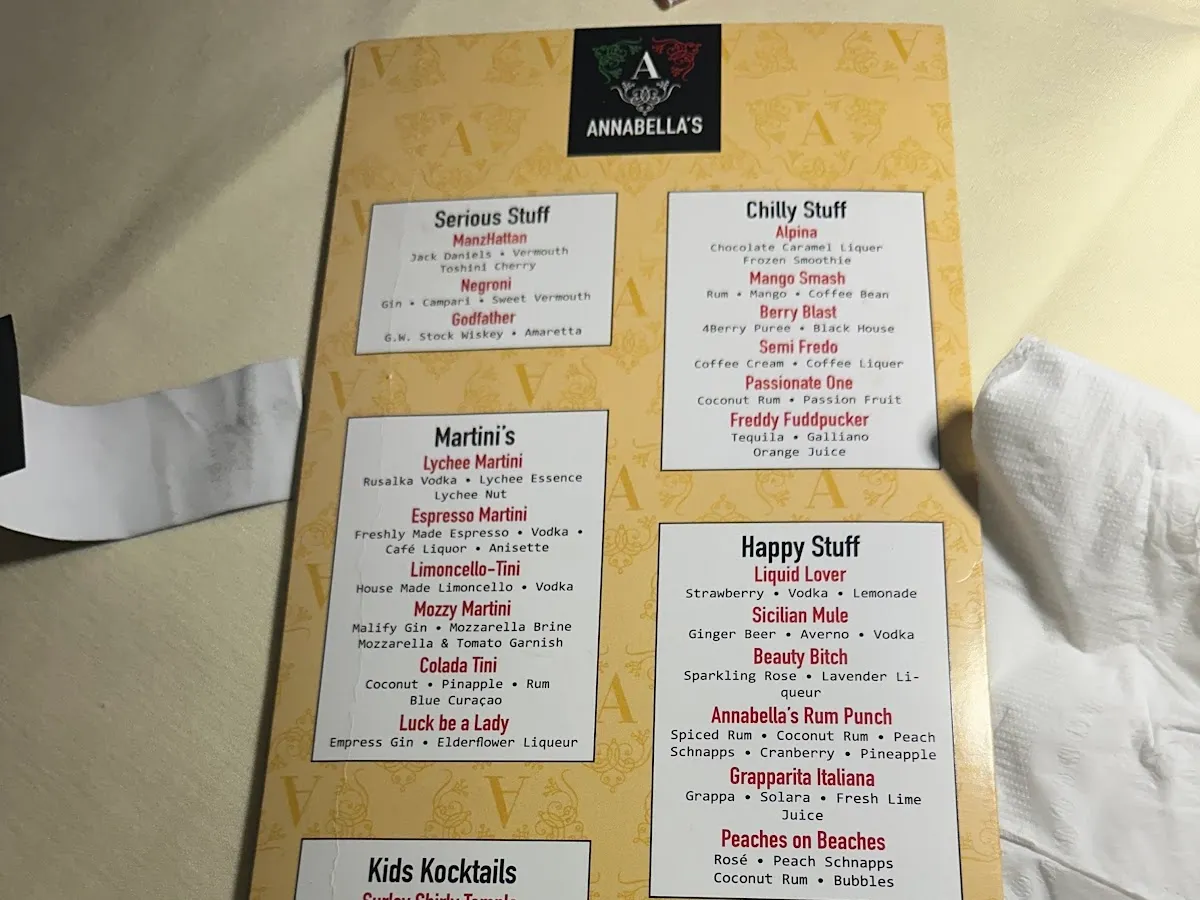 A
ANNABELLA'S
Serious Stuff
ManzHattan
Jack Daniels • Vermouth
Toshini Cherry
Negroni
Gin • Campari • Sweet Vermouth
Godfather
G.W. Stock Wiskey • Amaretta
Martini's
Lychee Martini
Rusalka Vodka • Lychee Essence
Lychee Nut
Espresso Martini
Freshly Made Espresso • Vodka •
Café Liquor • Anisette
Limoncello-Tini
House Made Limoncello • Vodka
Mozzy Martini
Malify Gin • Mozzarella Brine
Mozzarella & Tomato Garnish
Colada Tini
Coconut • Pinapple • Rum
Blue Curaçao
Luck be a Lady
Empress Gin • Elderflower Liqueur
Kids Kocktails
Chilly Stuff
Alpina
Chocolate Caramel Liquer
Frozen Smoothie
Mango Smash
Rum • Mango • Coffee Bean
Berry Blast
4Berry Puree • Black House
Semi Fredo
Coffee Cream • Coffee Liquer
Passionate One
Coconut Rum • Passion Fruit
Freddy Fuddpucker
Tequila • Galliano
Orange Juice
Happy Stuff
Liquid Lover
Strawberry • Vodka • Lemonade
Sicilian Mule
Ginger Beer • Averno • Vodka
Beauty Bitch
Sparkling Rose • Lavender Li-
queur
Annabella's Rum Punch
Spiced Rum • Coconut Rum • Peach
Schnapps • Cranberry • Pineapple
Grapparita Italiana
Grappa • Solara • Fresh Lime
Juice
Peaches on Beaches
Rosé • Peach Schnapps
Coconut Rum • Bubbles